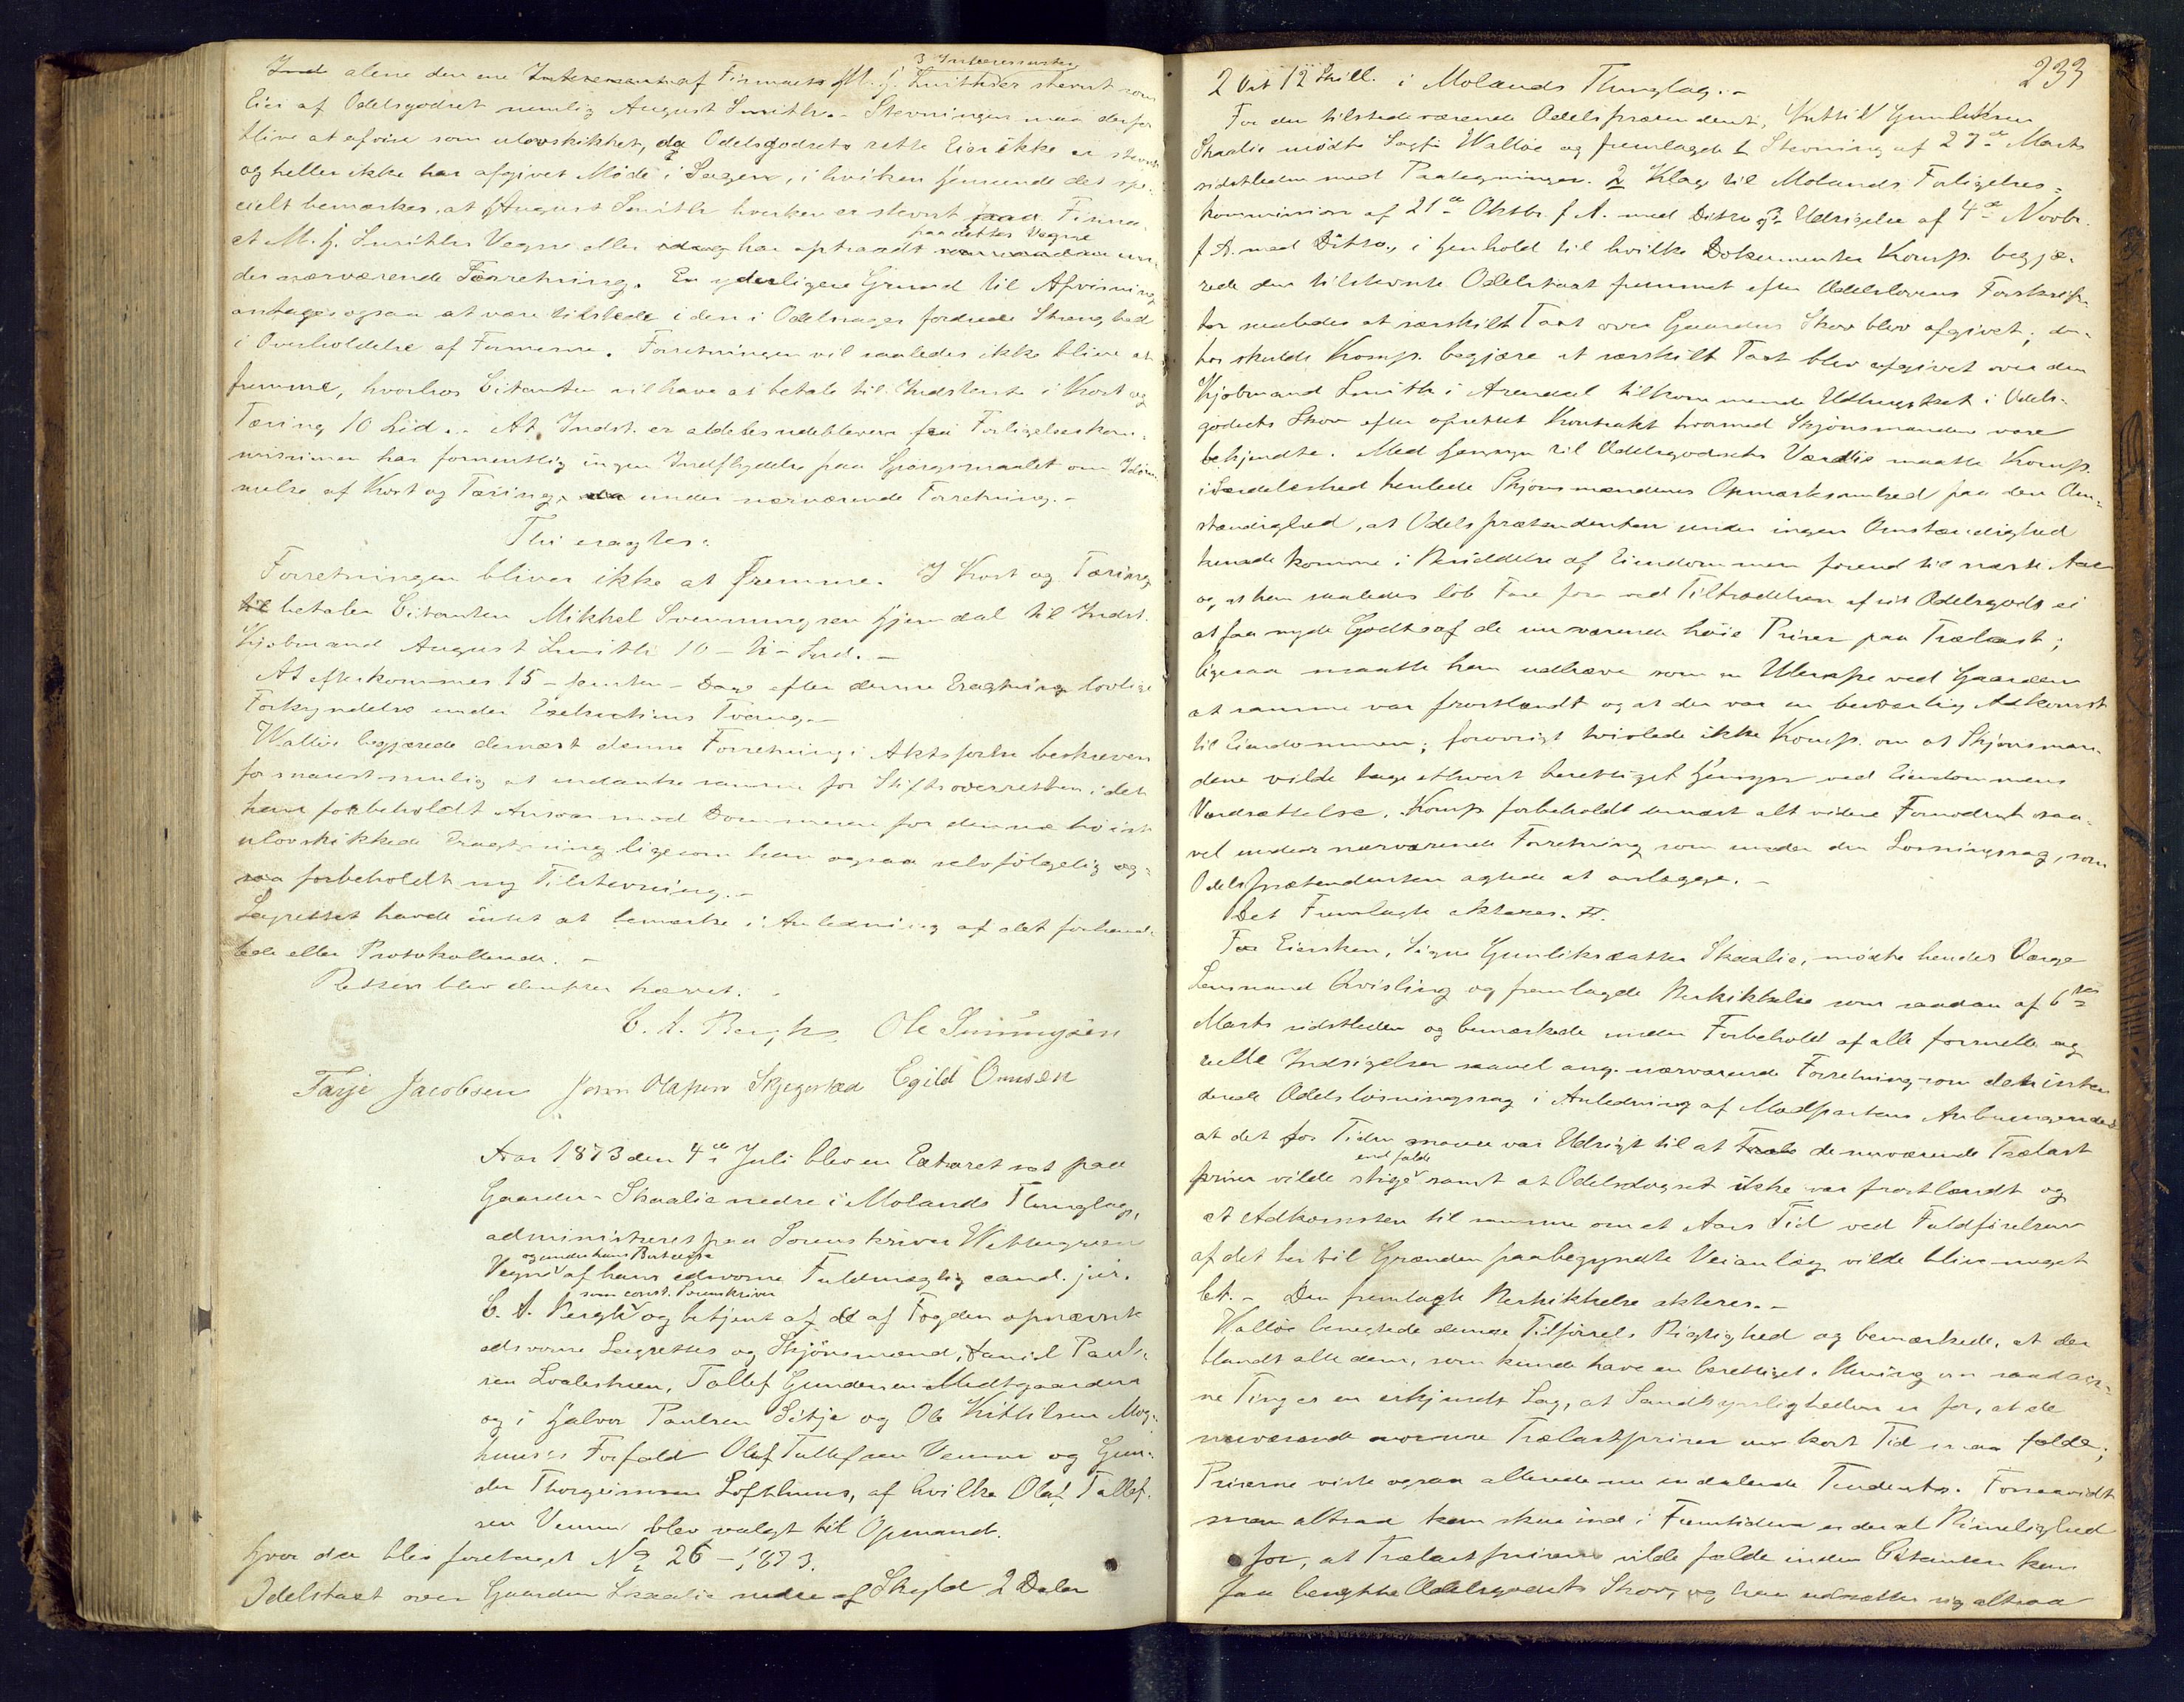 3 Interessenter
Ind alene den ene Interessent af Firmaets M. J. Smiths er stevnt som
Eier af Odelsgodset nemlig August Smith. Stevningen maa derfor
blive at afvise som ulovskikket, da Odelsgodsets rette Eier ikke er stevnt
og heller ikke har afgivet Møde i Sagen, i hvilken Henseende det spe-
cielt bemærkes, at August Smith hverken er stevnt paa Firma-
paa dettes Vegne
et M. J. Smiths Vegne eller har optraadt un-
der nærværende Forretning. En yderligere Grund til Afvisning
antages ogsaa at være tilstede i den i Odelssager fordrede Strenghed
i Overholdelse af Formerne. Forretningen vil saaledes ikke blive at
fremme, hvorhos Citanten vil have at betale til Indstevnte i Kost og
Tæring 10 Spd. At Indst. er aldeles udebleven fra Forligelseskom-
missionen har formentlig ingen Indflydelse paa Spørgsmaalet om Idøm-
melse af Kost og Tæring under nærværende Forretning.-
Thi eragtes:
Forretningen bliver ikke at fremme. I Kost og Tæring
til betaler Citanten Mikkel Svennungsen Hjemdal til Indst.
Kjøbmand August Smith 10 - ti - Spd. -
At efterkommes 15 - femten - Dage efter denne Eragtnings lovlige
Forkyndelse under Exekutions Tvang.-
Walløe begjærede dernæst denne Forretning i Aktsform beskreven
for snarest mulig at indanke samme for Stiftsoverretten, idet
han forbeholdt Ansvar mod Dommeren for denne høist
ulovskikkede Eragtning ligesom han ogsaa selvfølgelig og-
saa forbeholdt ny Tilstevning.-
Lagrettet havde intet at bemærke i Anledning af det forhand-
lede eller Protokollerede. -
Retten blev derefter hævet. -
C. A. Bergh. Ole Svennungsen
Tarje Jacobsen Jørn Olafsen Skjegestad Egild Omsen
Aar 1873 den 4de Juli blev en Extraret sat paa
Gaarden Skaalie nedre i Molands Thinglag,
administreret paa Sorenskriver Wettergreens
og under hans Bortreise
Vegne af hans edsvorne Fuldmægtig cand. jur.
som const. Sorenskriver
C. A. Bergh og betjent af de af Fogden opnævnte
edsvorne Lagrettes og Skjønsmænd, Daniel Paul-
sen Lvalestuen, Tallef Gundersen Midtgaarden
og i Halvor Paulsen Sitje og Ole Kittilsen Mog-
huus's Forfald Olaf Tallefsen Vemme og Gun-
der Thorgeirmsen Lofthuus, af hvilke Olaf Tallef-
sen Vemme blev valgt til Opmand.
Hvor da blev foretaget No 26 - 1873.
Odelstaxt over Gaarden Skaalie nedre af Skyld 2 Daler
233
2 Ort 12 Skill. i Molands Thinglag.-
For den tilstedeværende Odelsprætendent, Kittil Gunleksen
Skaalie mødte Sagf. Walløe og fremlagde 1 Stevning af 27de Marts
sidstleden med Paategninger. 2 Klage til Molands Forligelses-
kommission af 21de Oktbr. f. A. med Ditto og 3 Udskrift af 4de Novbr.
f. A. med Ditto, i Henhold til hvilke Dokumenter Komp. begjæ-
rede den tilstevnte Odelstaxt fremmet efter Odelslovens Forskrif-
ter saaledes at særskilt Taxt over Gaardens Skov blev afgivet; der-
hos skulde Komp. begjære at særskilt Taxt blev afgivet over den
Kjøbmand Smith i Arendal tilkommende Udhugstret i Odels-
godsets Skov efter oprettet Kontrakt hvormed Skjønsmændene vare
bekjendte. Med Hensyn til Odelsgodsets Værdie maatte Komp.
i Særdeleshed henlede Skjønsmændenes Opmærksomhed paa den Om-
stændighed, at Odelsprætendenten under ingen Omstændighed
kunde komme i Besiddelse af Eiendommen førend til næste Aar
og at han saaledes løb Fare for ved Tiltrædelsen af sit Odelsgods ei
at faa nyde Godt af de nuværende høie Priser paa Trælast;
ligesaa maatte han udhæve som en Ulempe ved Gaarden
at samme var frostlændt og at der var en besværlig Adkomst
til Eiendommen; forøvrigt tvivlede ikke Komp. om at Skjønsmæn-
dene vilde tage ethvert berettiget Hensyn ved Eiendommens
Værdsættelse. Komp. forbeholdt dernæst alt videre Fornødent saa-
vel under nærværende Forretning som under den Løsningssag, som
Odelsprætendenten agtede at anlægge. -
Det Fremlagte akteres.
For Eiersken, Signe Gunleiksdatter Skaalie, mødte hendes Værge
Lensmand Qvisling og fremlagde Beskikkelse som saadan af 6te
Marts sidstleden og bemærkede under Forbehold af alle formelle og
reelle Indsigelser saavel ang. nærværende Forretning som den inten-
derede Odelsløsningssag i Anledning af Modpartens Anbringende
at det for Tiden snarere var Udsigt til at de nuværende Trælast
end falde
priser vilde stige samt at Odelsgodset ikke var frostlændt og
at Adkomsten til samme om et Aars Tid ved Fuldførelsen
af det her til Grænden paabegyndte Veianlæg vilde blive meget
let. - Den fremlagte Beskikkelse akteres.-
Walløe benegtede denne Tilførsels Rigtighed og bemærkede, at der
blandt alle dem, som kunde have en berettiget Mening om saadan-
ne Ting er en erkjendt Sag, at Sandsynligheden er for, at de
nuværende enorme Trælastpriser om kort Tid maa falde;
Priserne viste ogsaa allerede nu en dalende Tendents. Forsaavidt
man altsaa kan skue ind i Fremtiden er der al Rimelighed
for, at Trælastpriserne vilde falde inden Citanten kan
faa benytte Odelsgodsets Skov, og han udsætter sig altsaa